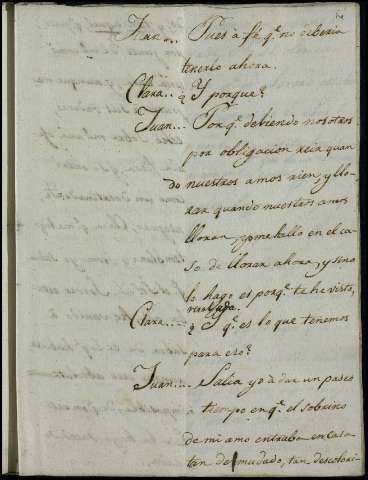 Juan... Pues à fé q.e no deberia
tenerlo ahora.
Clara... ¿Y porque?
Juan... Porq.e debiendo nosotros
por obligacion reir quan
do nuestros amos rien, y llo-
rar quando nuestros amos
lloran, yo me hallo en el ca-
so de llorar ahora, y sino
lo hago es porq.e te he visto,
Clara... ¿Y q.e es lo que tenemos
para eso?
Juan... Salia yo à dar un paseo
tiempo en q.e el sobrino
de mi amo entraba en casa
tan demudado, tan descolori-